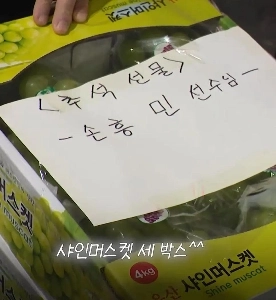 <추석 선물>
-손흥민 선수님-
샤인머스켓 세 박스^^
샤인머스켓
4KG
샤인머스켓
shine muscat